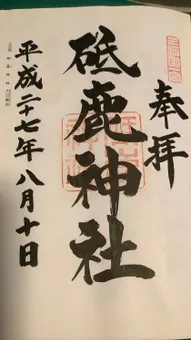 奉拝
砥鹿神社
平成二十七年八月十日